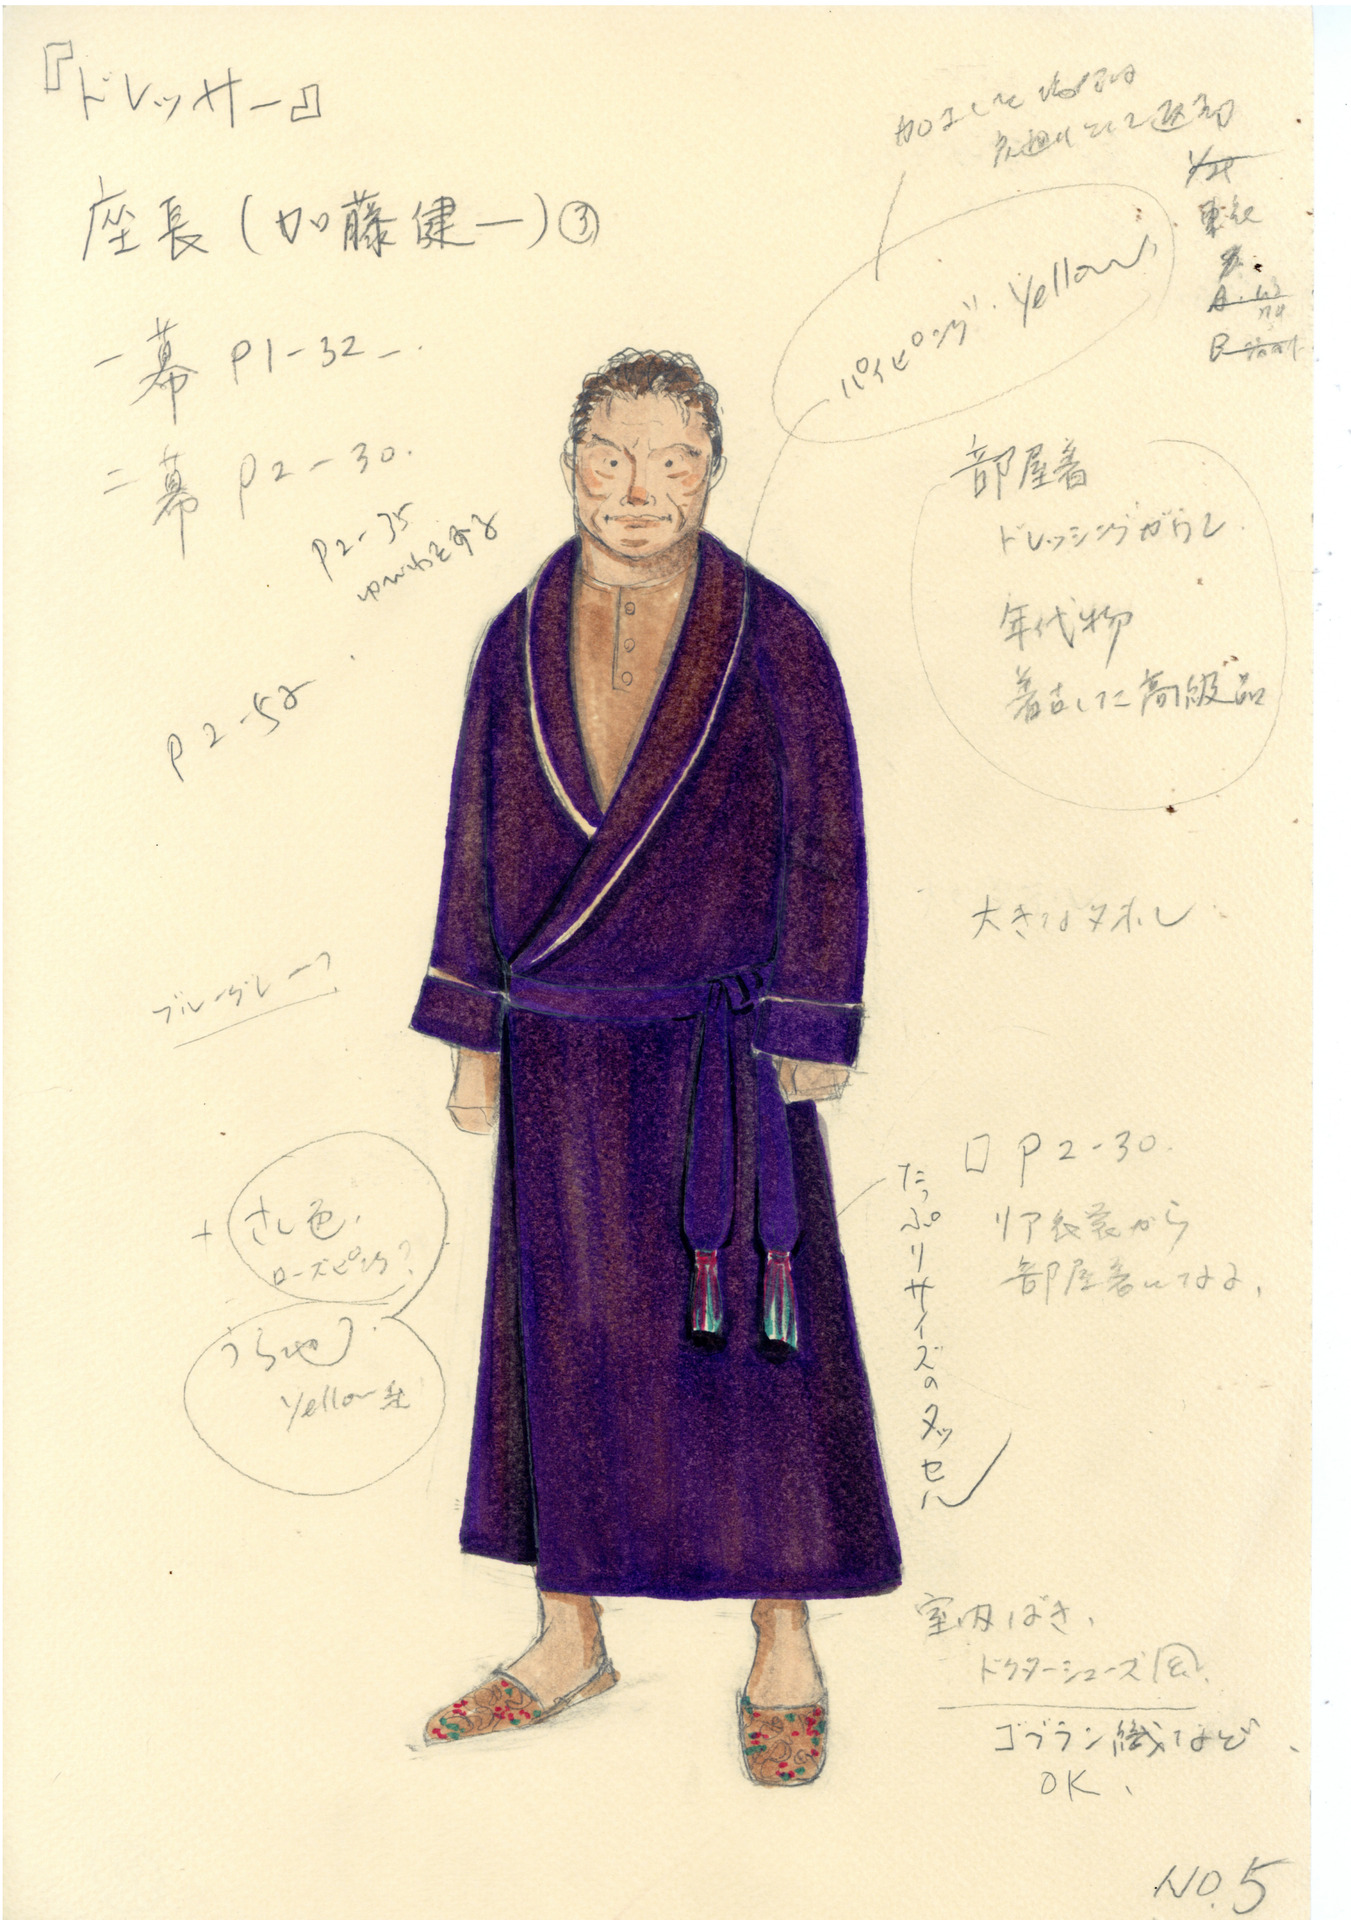 『ドレッサー』
座長(加藤健一)③
一幕 P1-32
二幕 P2-30.
P2-35
P2-52
加工して
返却
パイピング・Yellow
部屋着
ドレッシングガウン
年代物
着古した高級品
大きなタオル
ブルーグレー
+ さし色.
ローズピンク?
うら地
Yellow系
P2-30.
リア衣装から
部屋着になる.
たっぷりサイズのタッセル
室内ばき、
ドクターシューズ風.
ゴブラン織など
OK、
NO.5